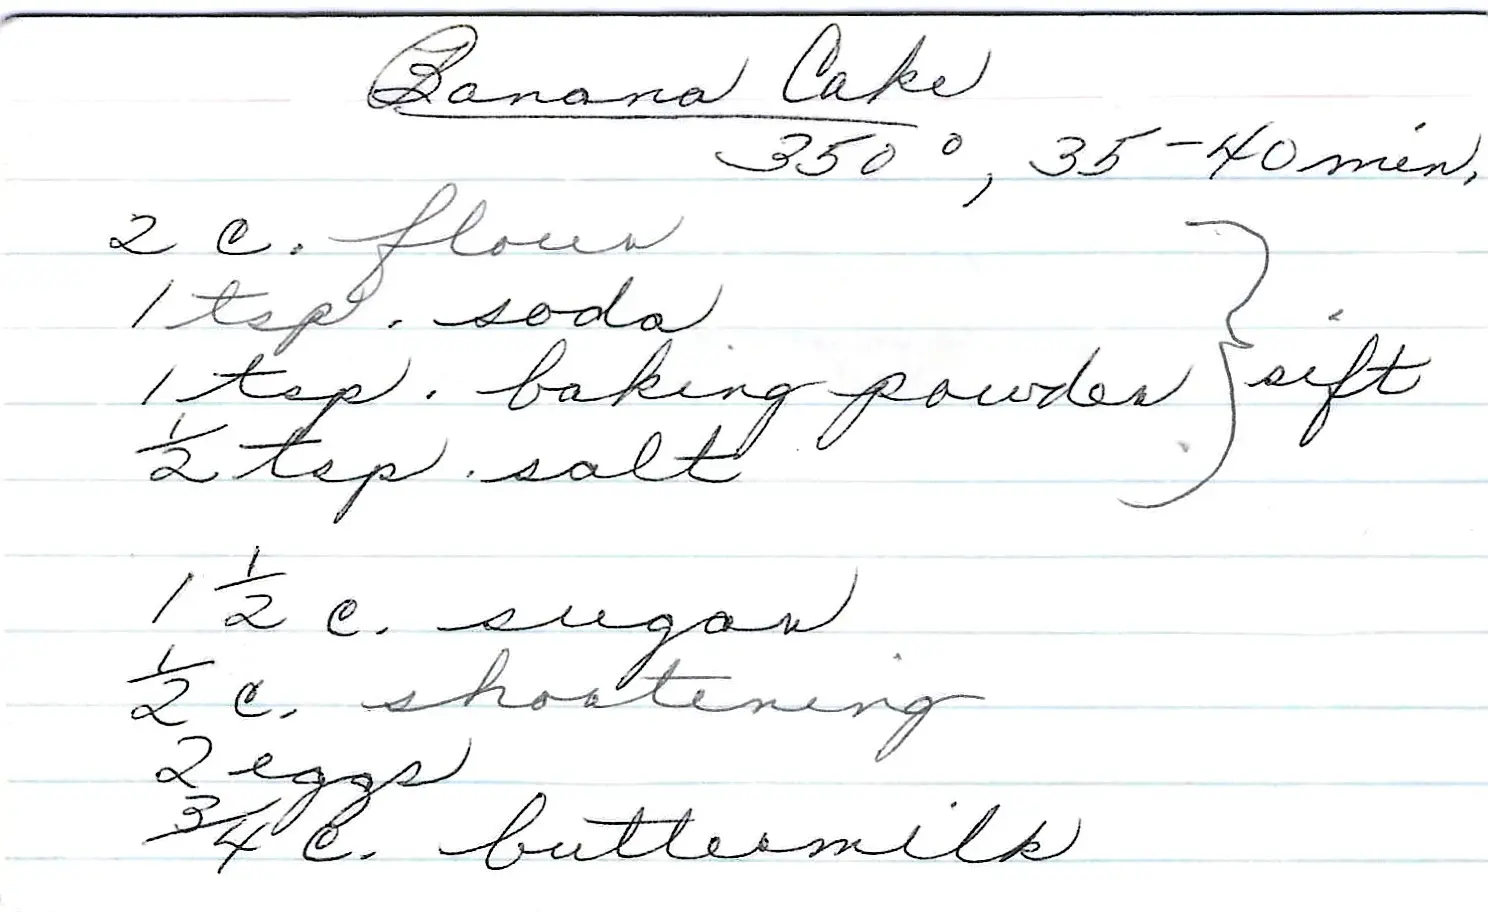 Banana Cake
350°, 35-40 min.
2 c. flour
1 tsp. soda
1 tsp. baking powder } sift
½ tsp. salt
1 ½ c. sugar
½ c. shortening
2 eggs
¾ c. buttermilk